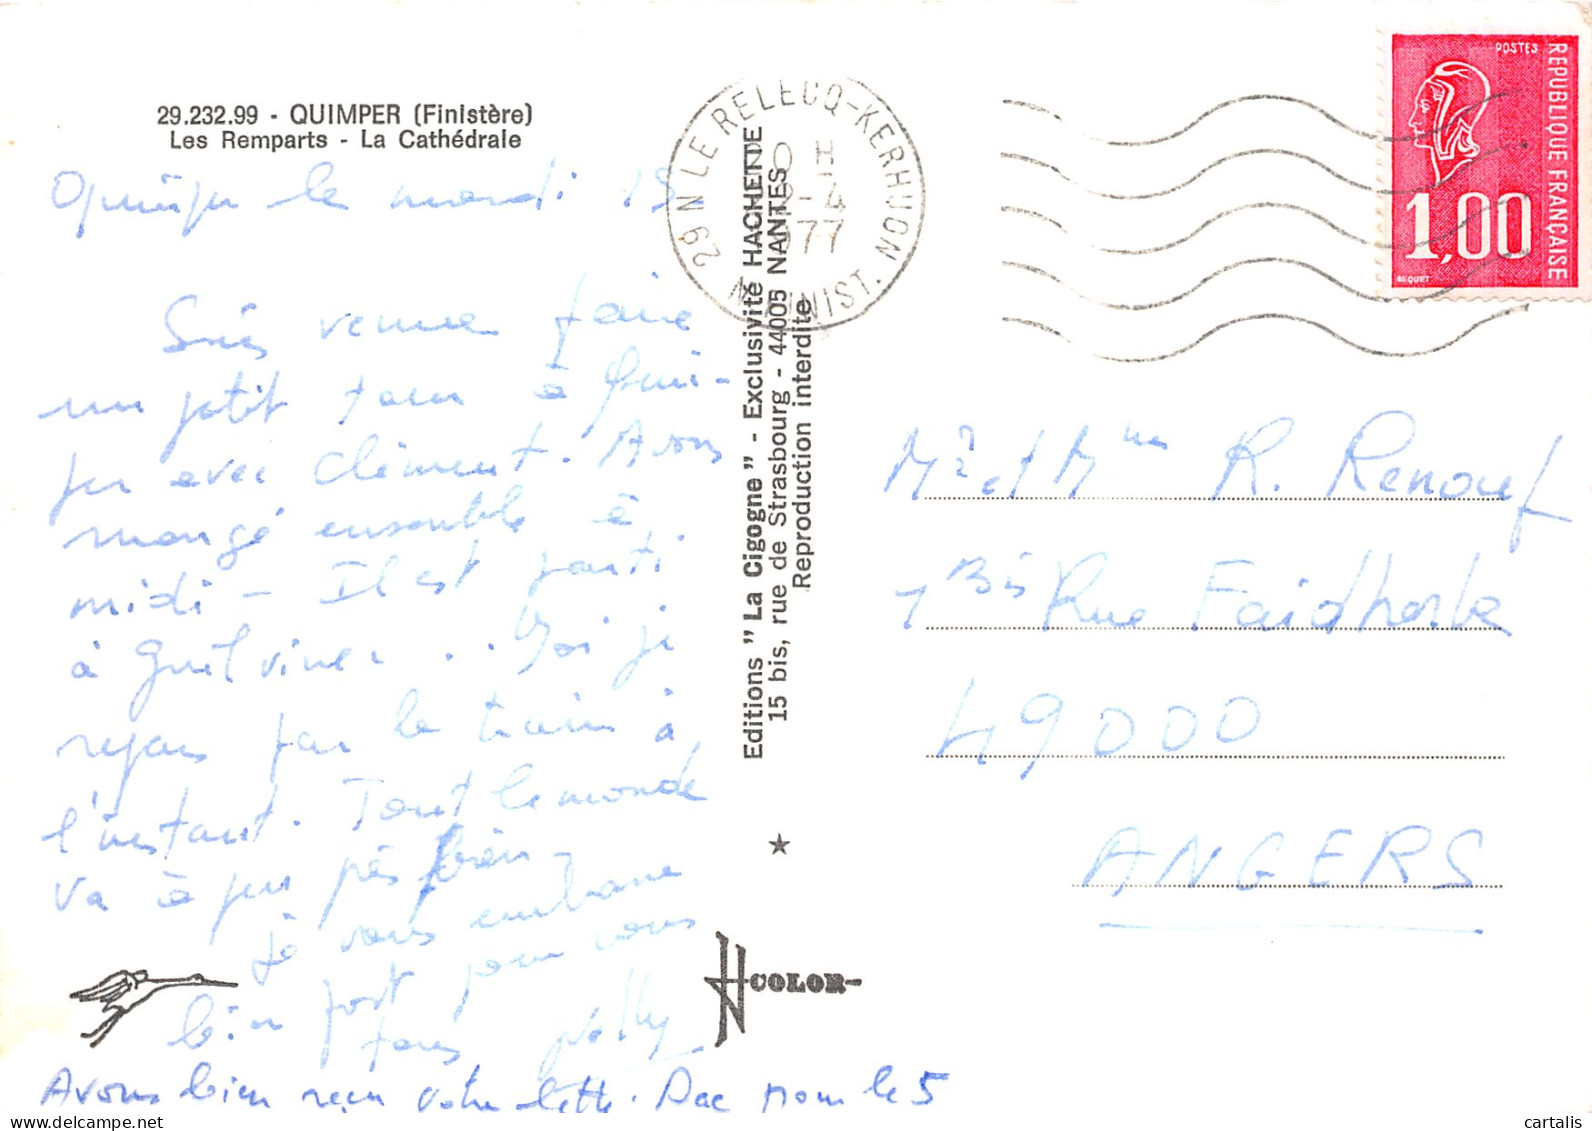 29.232.99 - QUIMPER (Finistère)
Les Remparts - La Cathédrale
Quimper le mardi 19
Suis venue faire
un petit tour à Quim-
per avec Clément. Avons
mangé ensemble à
midi - Il est parti
à Guilvinec . . Moi je
repars par le train à
l'instant. Tout le monde
va à peu près bien -
Je vous embrasse
bien fort pour vous
tous
Avons bien reçu votre lettre. Dac pour le 5
Editions "La Cigogne" - Exclusivité HACHETTE
15 bis, rue de Strasbourg - 44005 NANTES
Reproduction interdite
HCOLOR
29 N LE RELECQ-KERHUON
N. FINIST.
-4
POSTES
REPUBLIQUE FRANÇAISE
1,00
BEQUET
Mr et Mme R. Renouf
1 Bis Rue Faidherbe
49000
ANGERS
cartalis